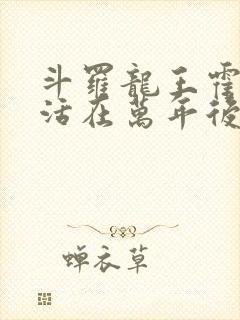 斗羅龍王霍
活在萬年後
蝉衣草